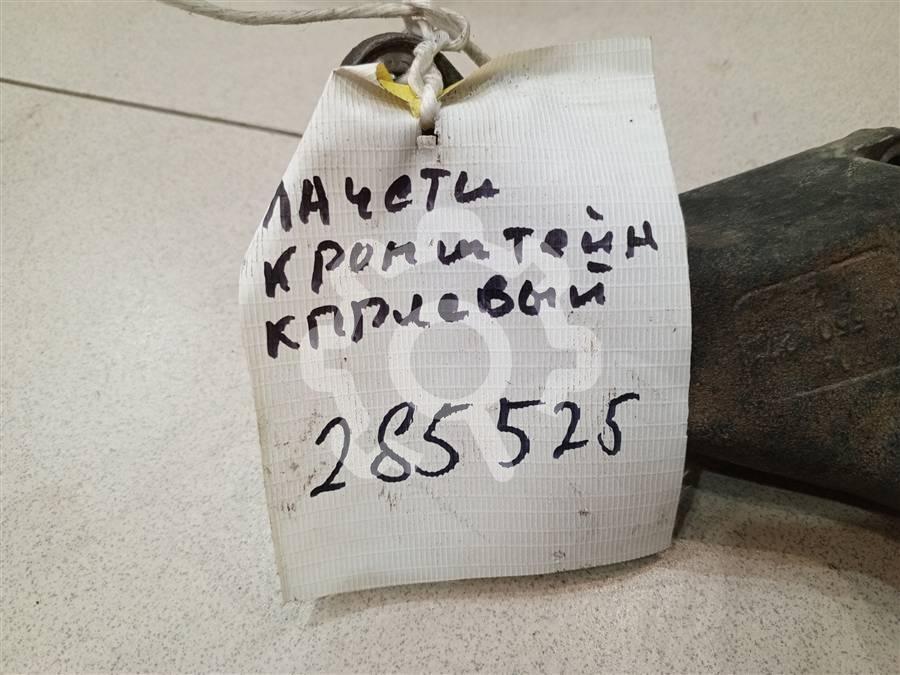 ЛАчеТи
кронштейн
кпплевый
285 525